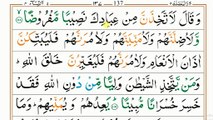 وَقَالَ لَاَتَّخِذَنَّ مِنْ عِبَادِكَ نَصِيْبًا مَّفْرُوْضًا
وَّلَاُضِلَّنَّهُمْ وَلَاُمَنِّيَنَّهُمْ وَلَاٰمُرَنَّهُمْ فَلَيُبَتِّكُنَّ
اٰذَانَ الْاَنْعَامِ وَلَاٰمُرَنَّهُمْ فَلَيُغَيِّرُنَّ خَلْقَ اللّٰهِ
وَمَنْ يَّتَّخِذِ الشَّيْطٰنَ وَلِيًّا مِّنْ دُوْنِ اللّٰهِ فَقَدْ
خَسِرَ خُسْرَانًا مُّبِيْنًا يَعِدُهُمْ وَيُمَنِّيْهِمْ وَمَا